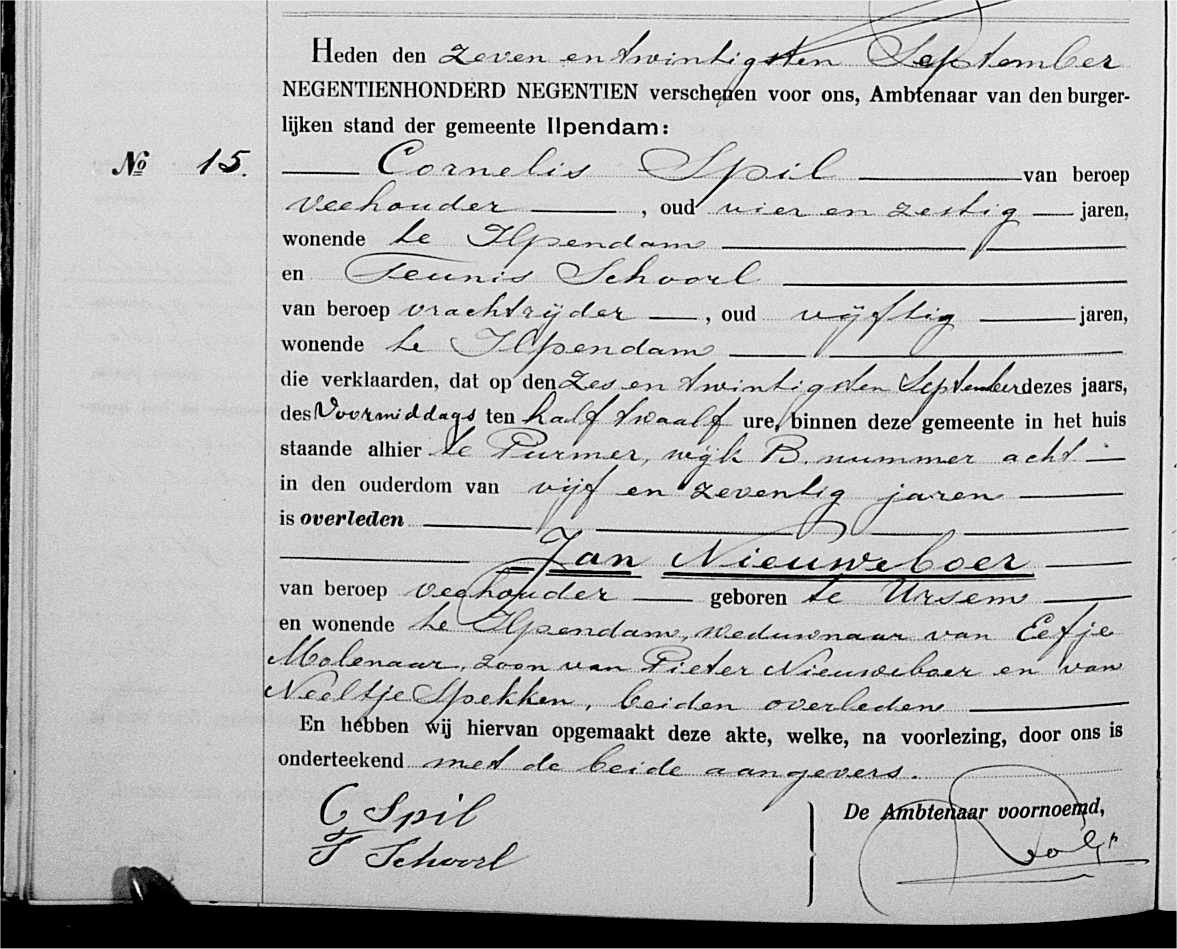 Heden den zeven en twintigsten September
NEGENTIENHONDERD NEGENTIEN verschenen voor ons, Ambtenaar van den burger-
lijken stand der gemeente Ilpendam:
No 15.
Cornelis Spil van beroep
veehouder, oud vier en zestig jaren,
wonende te Ilpendam
en Teunis Schoorl
van beroep vrachtrijder, oud vijftig jaren,
wonende te Ilpendam
die verklaarden, dat op den zes en twintigsten September dezes jaars,
des Voormiddags ten half twaalf ure, binnen deze gemeente in het huis
staande alhier te Purmer, wijk B. nummer acht
in den ouderdom van vijf en zeventig jaren
is overleden
Jan Nieuweboer
van beroep veehouder geboren te Ursem
en wonende te Ilpendam, weduwnaar van Eefje
Molenaar, zoon van Pieter Nieuweboer en van
Neeltje Spekken, beiden overleden
En hebben wij hiervan opgemaakt deze akte, welke, na voorlezing, door ons is
onderteekend met de beide aangevers.
C Spil
T Schoorl
De Ambtenaar voornoemd,